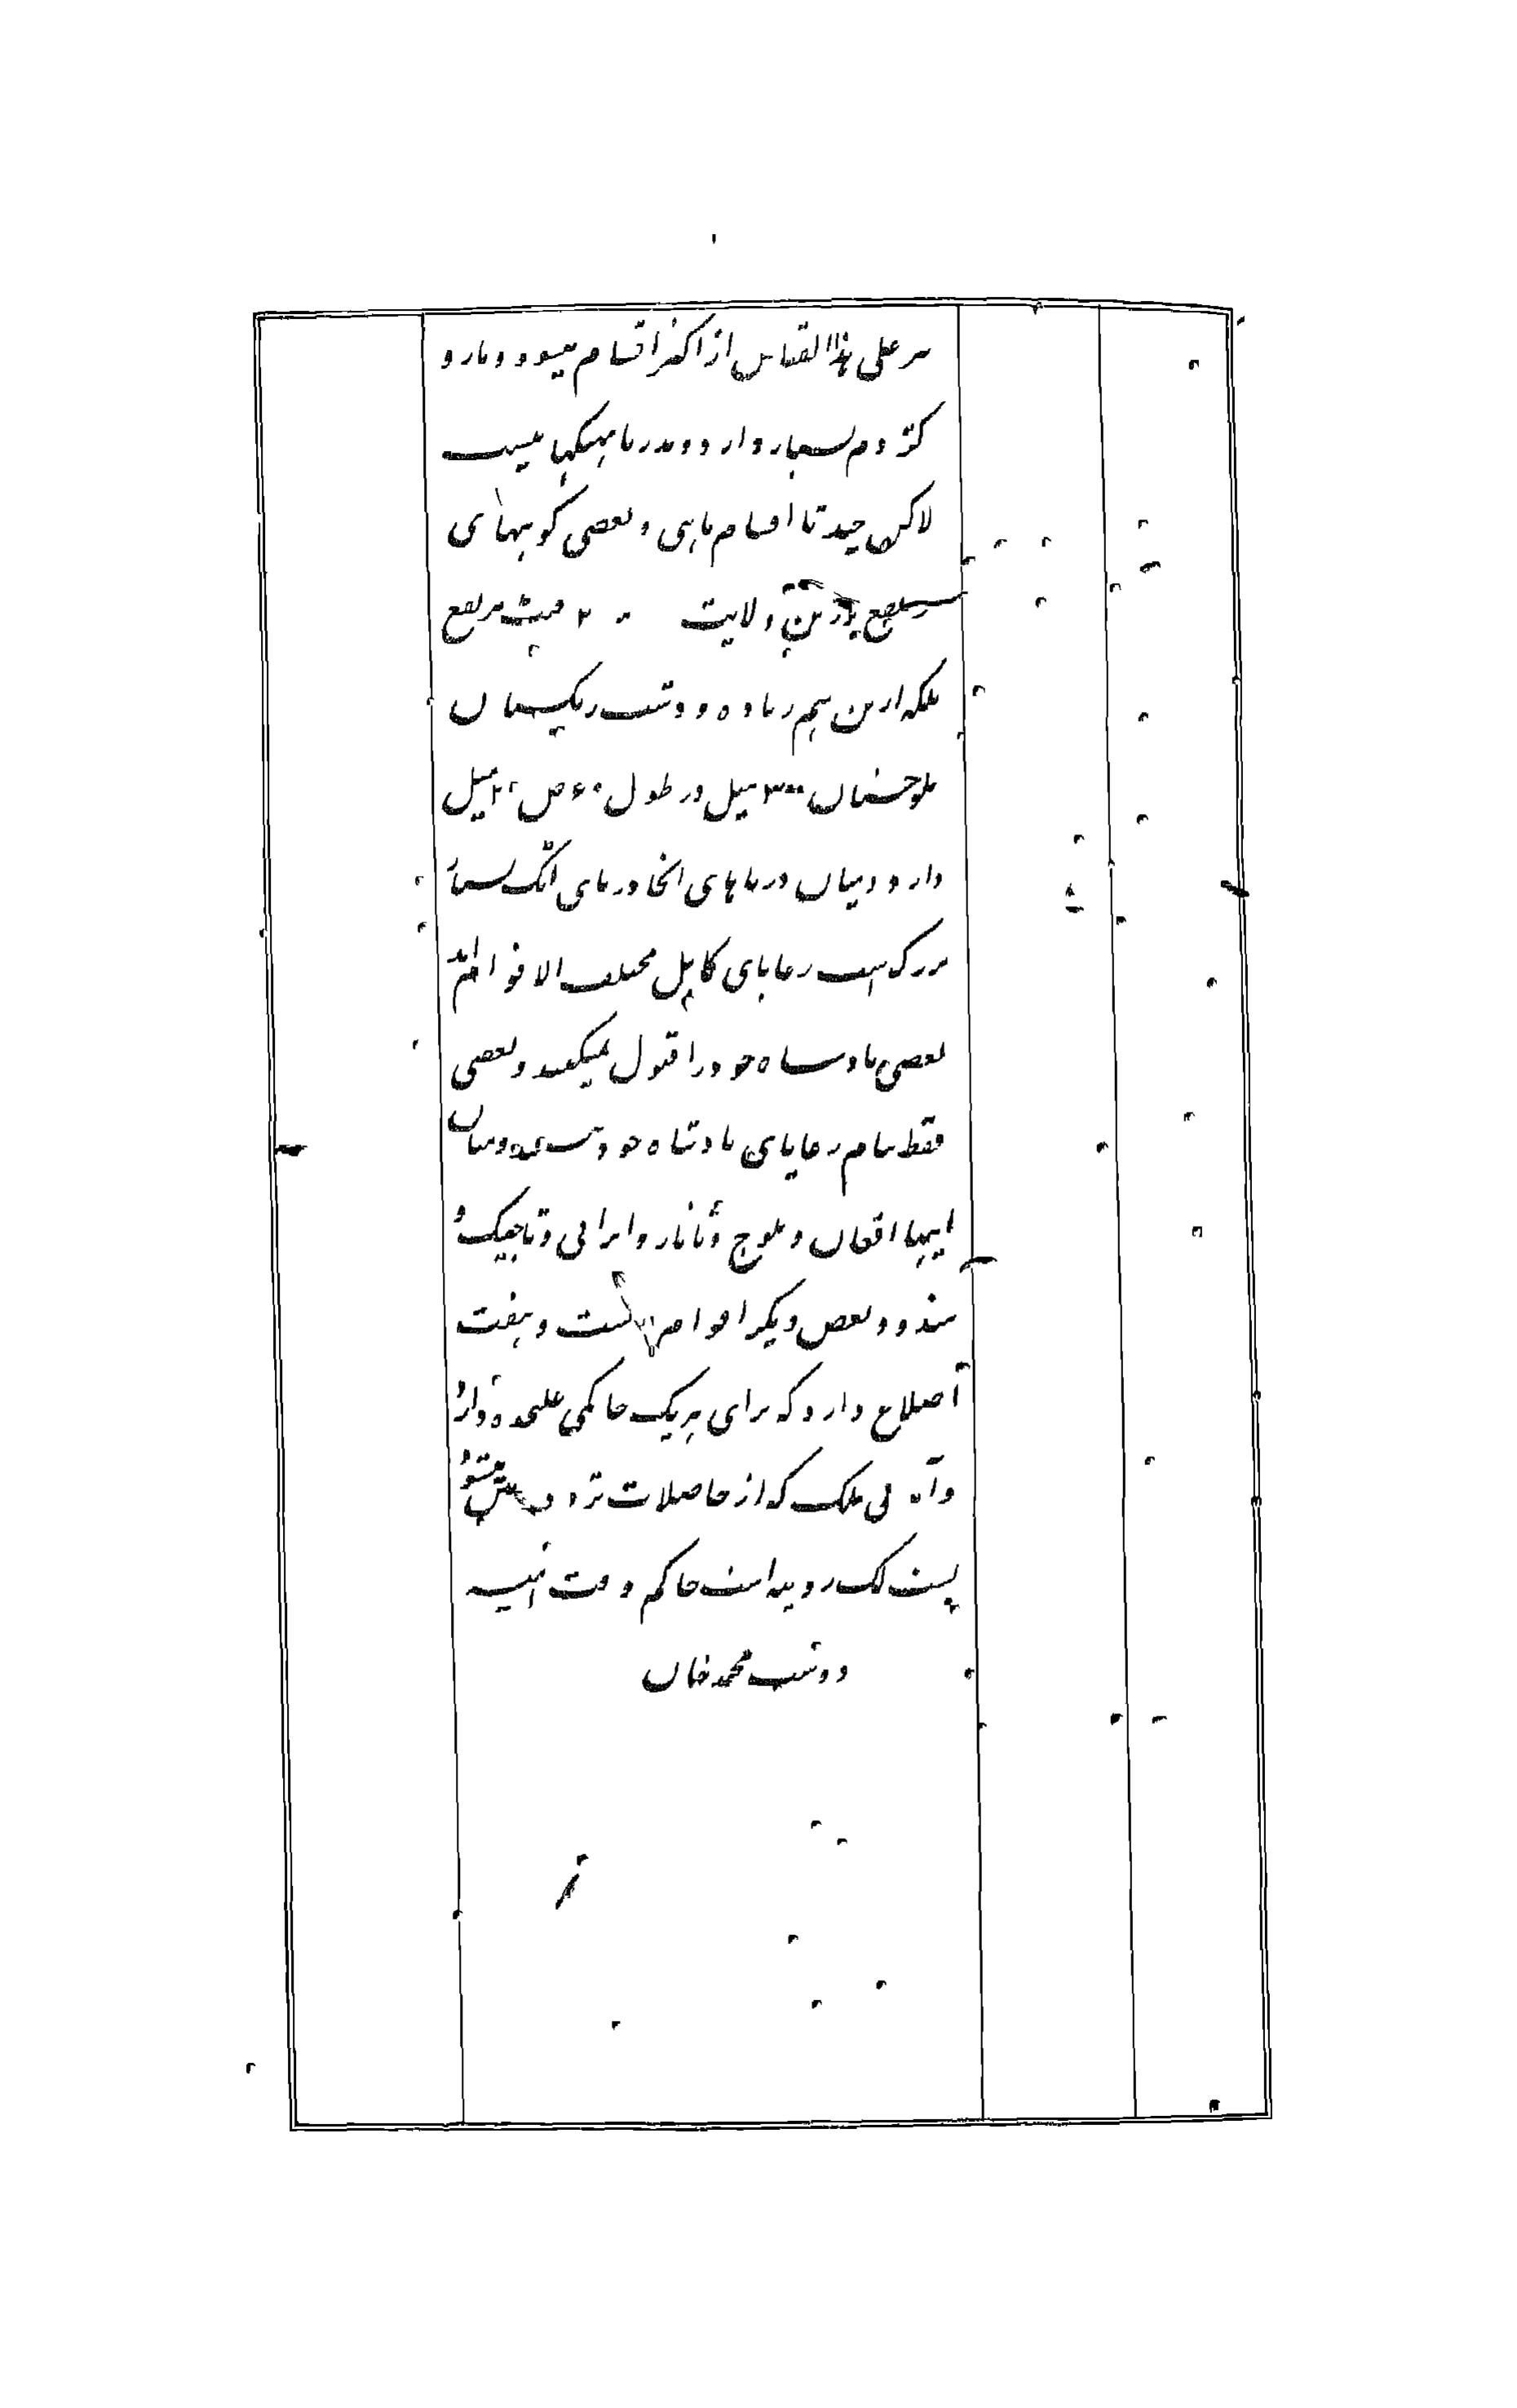 بر علی هذا القیاس از اکثر اقسام میشود و مار و
کژدم بسیار دارد و در دریا نهنگها نیست
لاکن چند تا اقسام ماهی و بعضی کوههای
ولایت ۲۰ فیت مربع
بلکه ازین هم زیاده و دشت ریگستان
بلوچستان ۳۰۰ میل در طول میل
دارد و میان دریاهای انجا دریای اٹک بسیار
بزرگ است رعایای کابل مختلف الاقوام اند
بعضی پادشاه خود را قبول نمیکنند و بعضی
فقط بنام رعایای پادشاه خود
اینها افغان و بلوچ و تاتار و ایرانی و تاجیک و
هندو و بعض دیگر اقوام است و هفت
اضلاع دارد که برای هر یک حاکمی علیحده دارد
و آمدنی ملک که از حاصلات
لک روپیه است حاکم وقت
دوست محمد خان